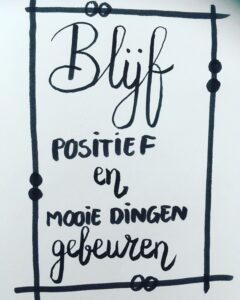 Blijf
POSITIEF
en
MOOIE DINGEN
gebeuren